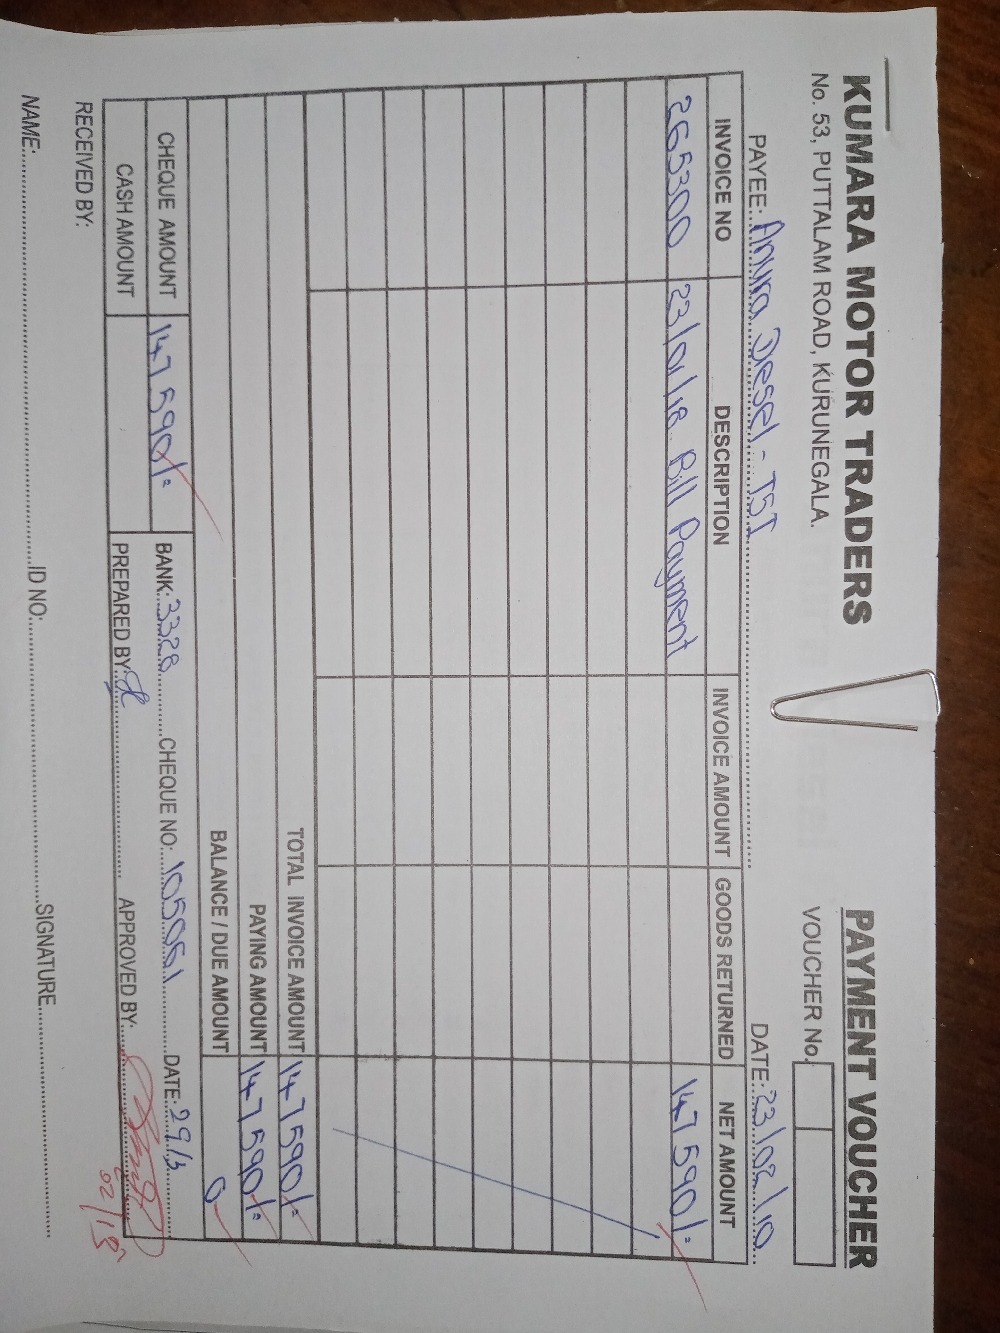 KUMARA MOTOR TRADERS
No. 53, PUTTALAM ROAD, KURUNEGALA.
PAYMENT VOUCHER
VOUCHER No.
PAYEE: Anura Diesel - TSI
DATE: 23/02/10
INVOICE NO DESCRIPTION INVOICE AMOUNT GOODS RETURNED NET AMOUNT
265300 23/01/18 Bill Payment 147 590/=
TOTAL INVOICE AMOUNT 147 590/=
PAYING AMOUNT 147 590/=
BALANCE / DUE AMOUNT 0
CHEQUE AMOUNT 147 590/= BANK: 3328 CHEQUE NO: 105061 DATE: 29/3
CASH AMOUNT PREPARED BY: APPROVED BY:
RECEIVED BY:
NAME: ID NO: SIGNATURE